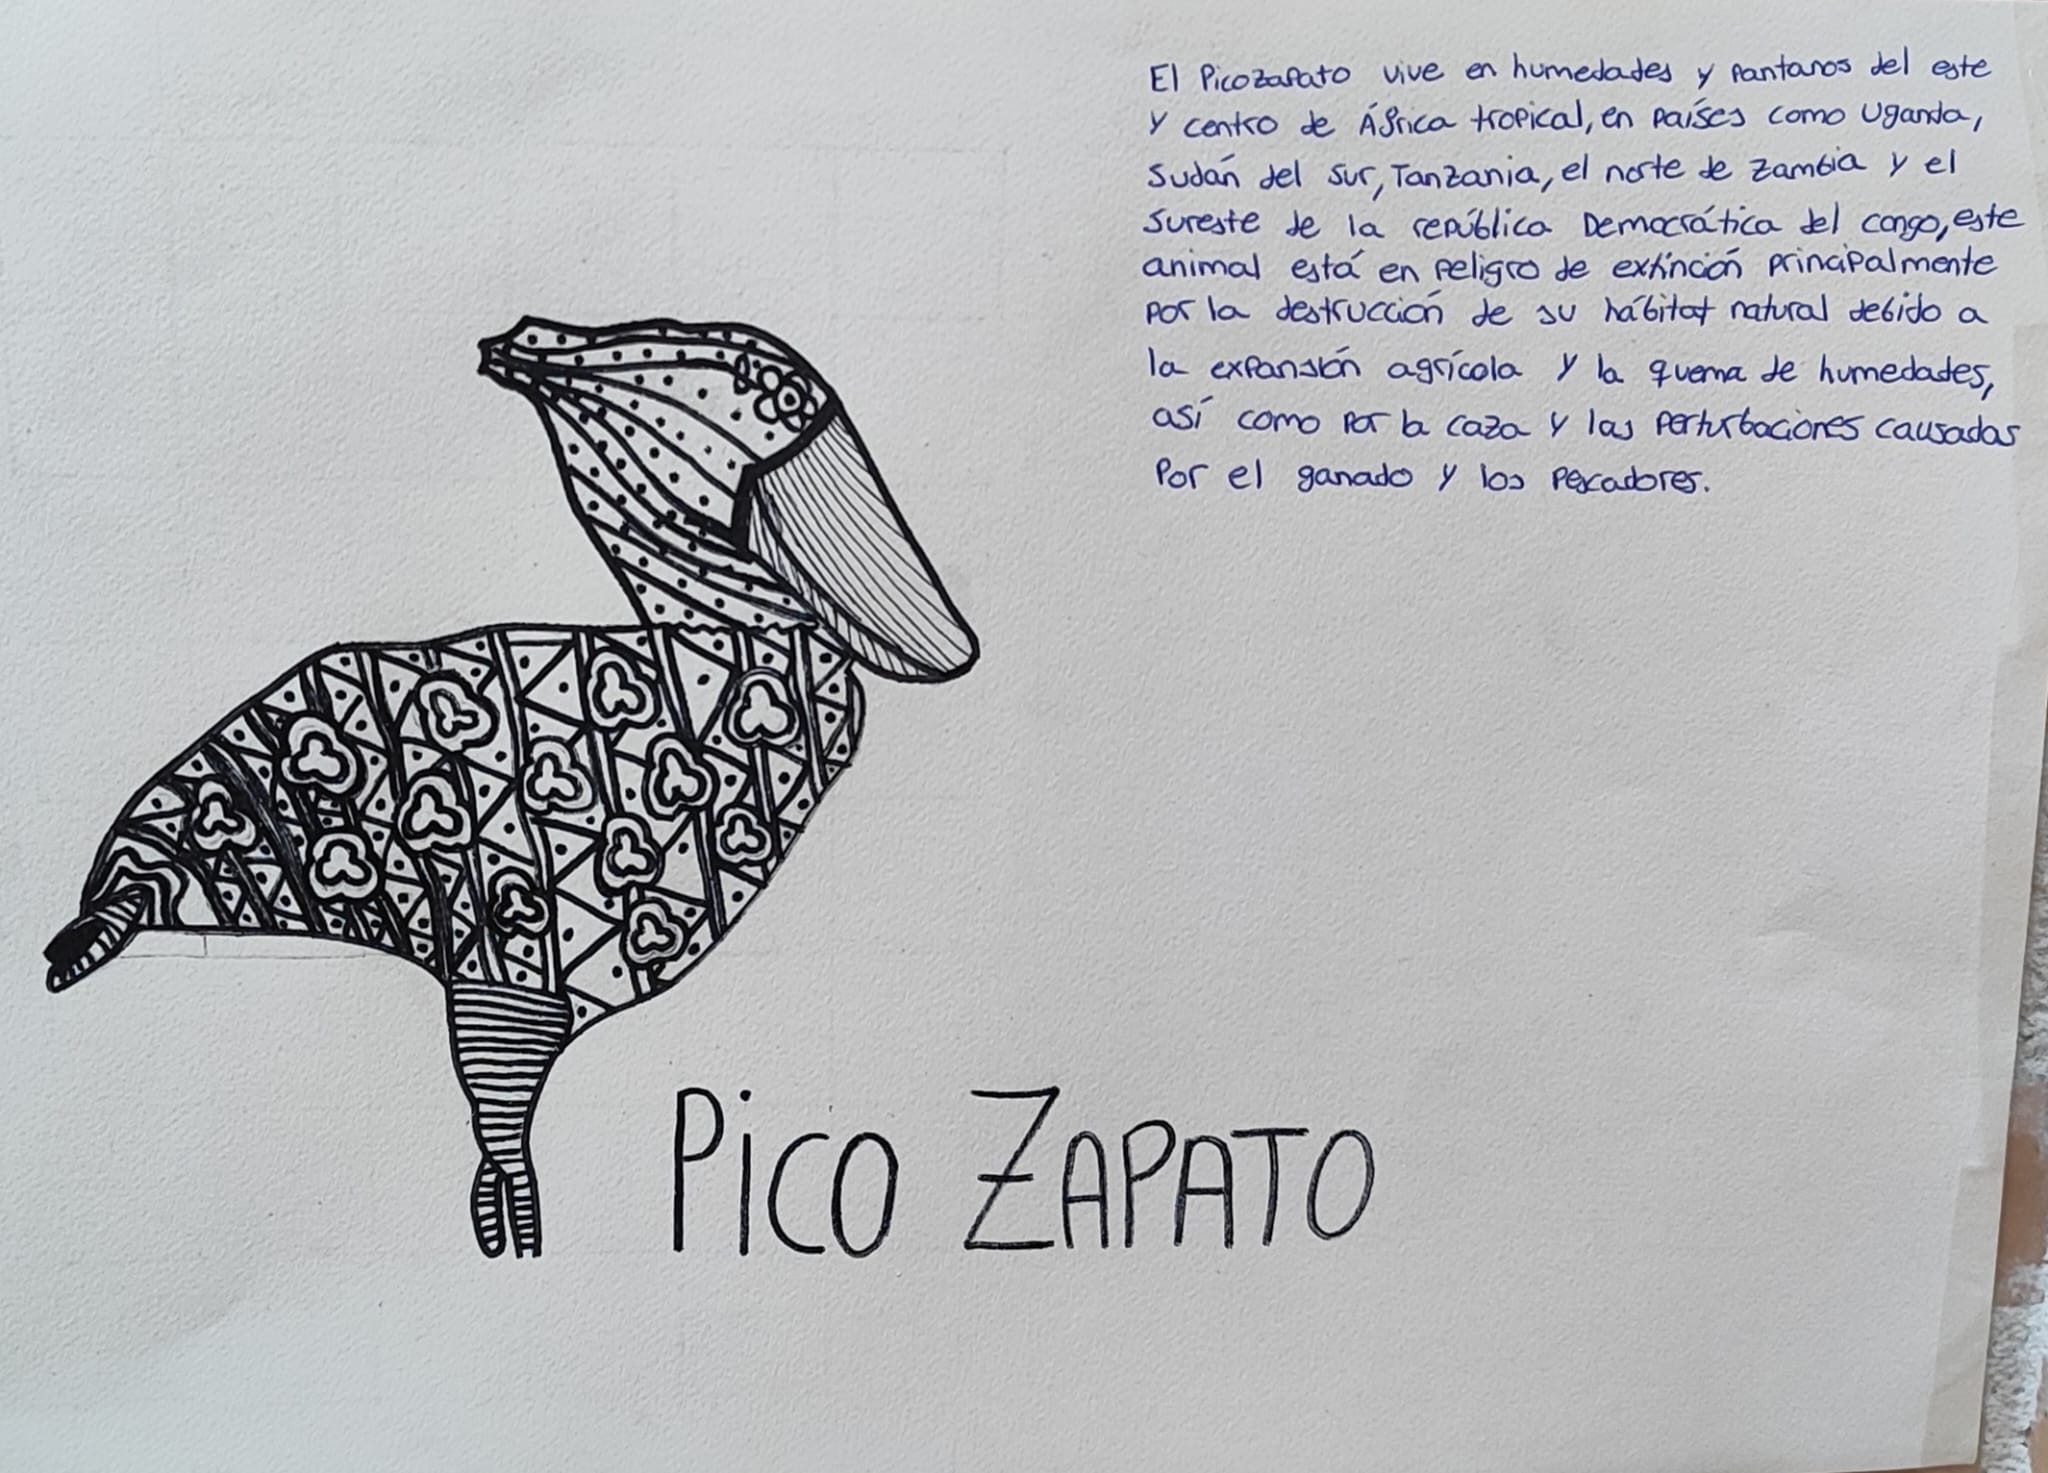 El Picozapato vive en humedades y pantanos del este
y centro de África tropical, en países como Uganda,
Sudán del Sur, Tanzania, el norte de Zambia y el
sureste de la república Democrática del congo, este
animal está en peligro de extinción principalmente
por la destrucción de su hábitat natural debido a
la expansión agrícola y la quema de humedades,
así como por la caza y las perturbaciones causadas
por el ganado y los pescadores.
PiCO ZAPATO